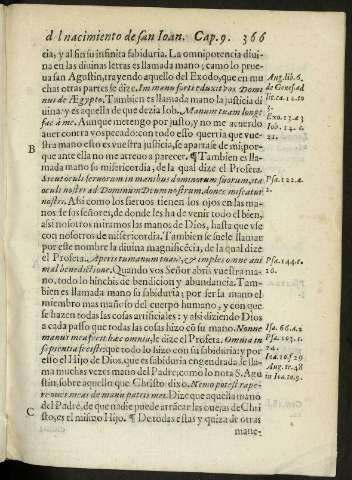 d l nacimiento de san Ioan. Cap. 9. 366
cia, y al fin su infinita sabiduria. La omnipotencia diui-
na en las diuinas letras es llamada mano; como lo prue-
ua san Agustin, trayendo aquello del Exodo, que en mu
chas otras partes se dize. In manu forti eduxit vos Domi
nus de Ægypto. Tambien es llamada mano la justicia di
uina: y es aquella de que dezia Iob. Manum tuam longe
fac à me. Aunque me tengo por justo, y no me acuerdo
auer contra vos pecado: con todo esso querria que vue-
stra mano esto es vuestra justicia, se apartase de mi: por-
que ante ella no me atreuo a parecer. ¶ Tambien es lla-
mada mano su misericordia, de la qual dize el Profeta.
Sicut oculi seruorum in manibus dominorum suorum, ita
oculi nostri ad Dominum Deum nostrum, donec misereatur
nostri. Asi como los sieruos tienen los ojos en las ma-
nos de sos señores, de donde les ha de venir todo el bien,
asi nosotros miramos las manos de Dios, hasta que vse
con nosotros de misericordia. Tambien se suele llamar
por este nombre la diuina magnificécia, de la qual dize
el Profeta. Aperis tu manum tuam, & imples omne ani
mal benedictione. Quando vos Señor abris vuestra ma-
no, todo lo hinchis de bendicion y abundancia. Tam-
bien es llamada mano su sabiduria; por ser la mano el
miembro mas mañoso del cuerpo humano, y con que
se hazen todas las cosas artificiales: y asi diziendo Dios
a cada passo que todas las cosas hizo cō su mano. Nonne
manus mea fecit hæc omnia, le dize el Profeta. Omnia in
sapientia fecisti: que todo lo hizo con su sabiduria: y por
esso el Hijo de Dios, que es sabiduria engendrada se lla-
ma muchas vezes mano del Padre, como lo nota S. Agu
stin, sobre aquello que Christo dixo. Nemo potest rape-
re oues meas de manu patris mei. Dize que aquella mano
del Padre, de que nadie puede arrācar las ouejas de Chri
sto, es el mismo Hijo. ¶ De todas estas y quiza de otras
mane-
B
C
Aug. lib. 6.
de Genes. ad
Exo. 13. a 3
Iob. 14. c.
21.
Psa. 122. a
2.
Psa. 144. c.
16.
Isa. 66. a. 2
Psa. 103. c.
24.
Ioa. 10. f 29
Aug. tr. 48
in Ioa. 10. 9.